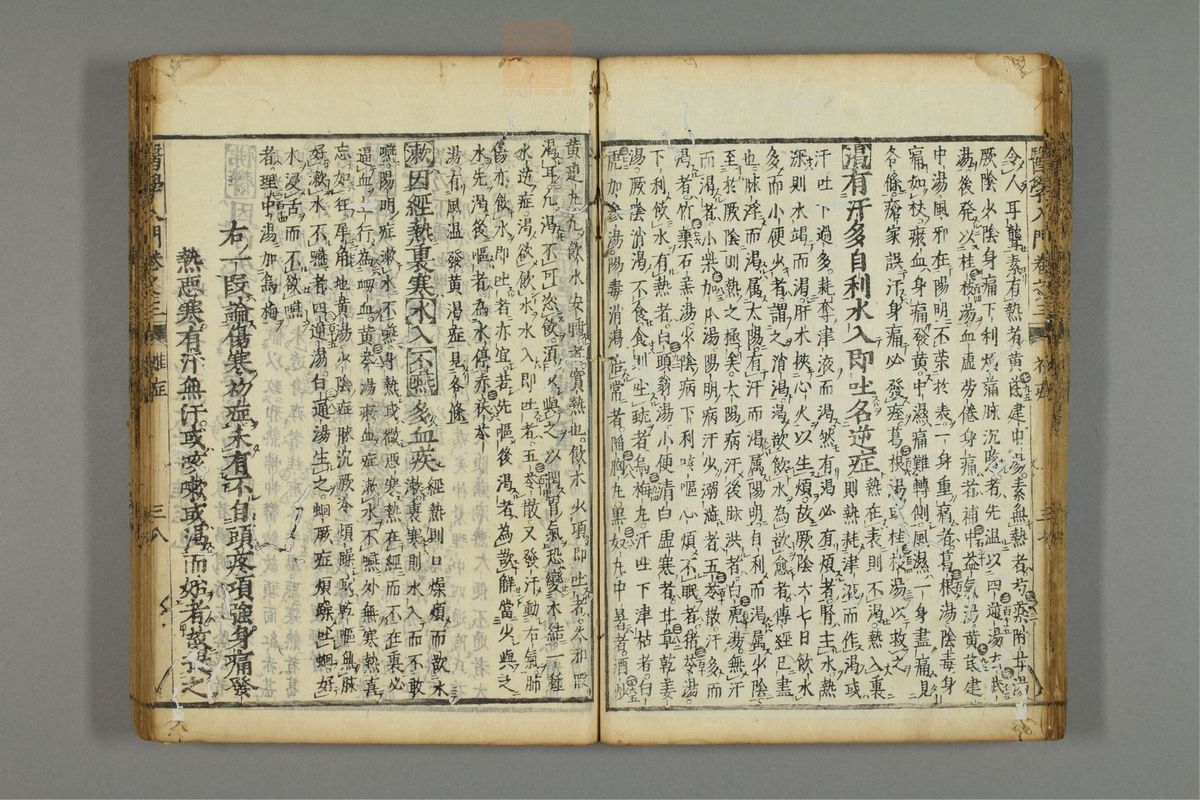 令人耳聾素有熱者黃芪建中湯素無熱者芍藥附子湯
厥陰少陰身痛下利煩滿脉沉
者先溫以四逆湯
湯後發以桂枝湯血虛勞倦身痛者補中益氣湯黃芪建
中湯風邪在陽明不榮於表一身重痛者葛根湯陰毒身
痛如杖瘀血汗身痛發黃中濕痛難轉側風濕一身盡痛見
各條瘡家誤汗身痛必發痙葛根湯或桂枝湯以救之
渴有汗多自利水入即吐名逆症
熱在表則不渴熱入裏
則熱耗津液而作渴或
汗吐下過多耗奪津液而渴然有渴必有煩者腎主水熱
深則水竭而渴肝木挾心火以生煩故厥陰六七日飲水
多而小便少者謂之消渴渴欲飲水為欲愈者傳經已盡
也脉浮而渴屬太陽有汗而渴屬陽明自利而渴屬少陰
至於厥陰則熱之極矣太陽病汗後脉洪者白虎湯無汗
而渴者小柴加
湯陽明病汗少溺澁者五苓散汗多而
渴者竹葉石羔湯少陰病下利咳嘔心煩不眠者猪苓湯
下利飲水有熱者白頭翁湯小便清白虛寒者甘草乾姜
湯厥陰消渴不食食則吐蚘者烏梅丸汗吐下津枯者白
虎加參湯陽毒消渴倍常者陷胸丸黑奴丸中暑者酒炒
黃連丸飲水安睡者實熱也飲水少頃即吐者
邪假
渴耳凡渴不可恣飲須少與之以潤胃氣恐變水結一種
水逆症渴欲飲水水入即吐者五苓散又發汗動右氣肺
傷亦飲水即吐者亦宜若先嘔後渴者為欲解當少與之
水先渴後嘔者為水停赤茯苓
湯有風溫發黃渴症見各條
漱因經熱裏寒水入不嚥多血疾
經熱則口燥煩而欲水
漱裏寒則水入而不敢
嚥陽明症漱水不嚥身熱或微惡寒熱在經而不在裏必
逼血
行為衂血黃芩湯瘀血症漱水不嚥外無寒熱喜
忘如狂犀角地黃湯少陰症脉沉厥冷煩躁或乾嘔無脉
好漱水不嚥者四逆湯白通湯生之蛔厥症煩躁吐蛔好
水浸舌而不欲嚥
者理中湯加烏梅
右一段論傷寒初症未有不自頭疼項強身痛發
熱惡寒有汗無汗或咳嗽或渴而始者故揭之
醫學入門卷之三
雜症
三八